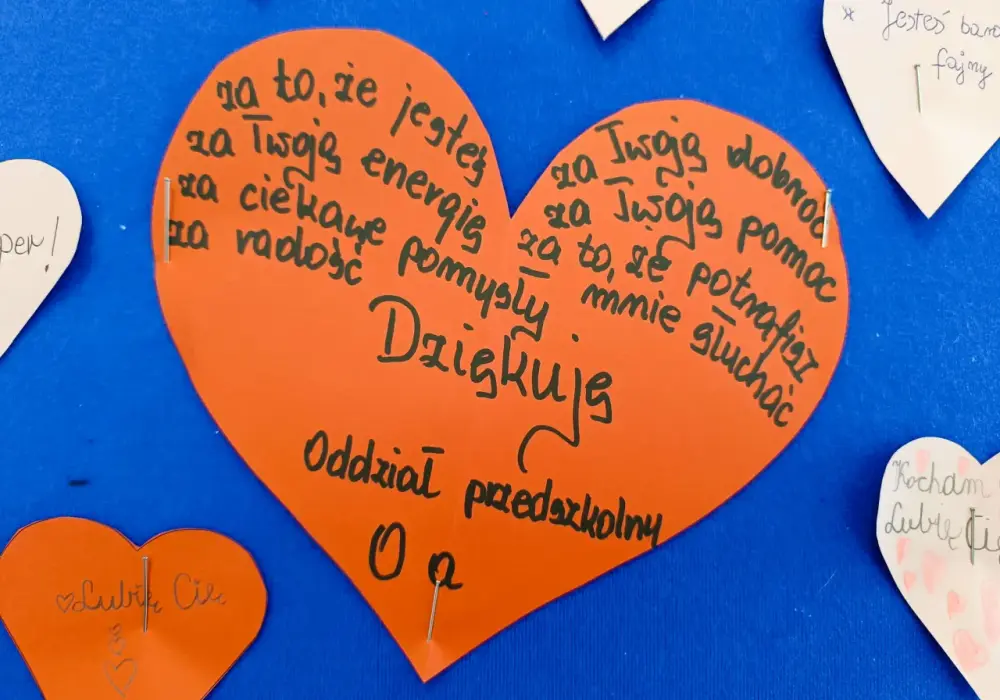 za to, że jesteś
za Twoją energię
za ciekawe pomysły
za radość
za Twoją dobroć
za Twoją pomoc
za to, że potrafisz
mnie słuchać
Dziękuję
Oddział przedszkolny
O a
Jesteś
fajny
per!
Lubię Cię
Kocham
Lubię Cię